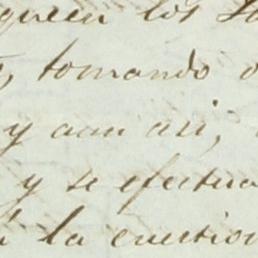 queen los
, tomando
y aun asi,
y se efectua
la cuestion